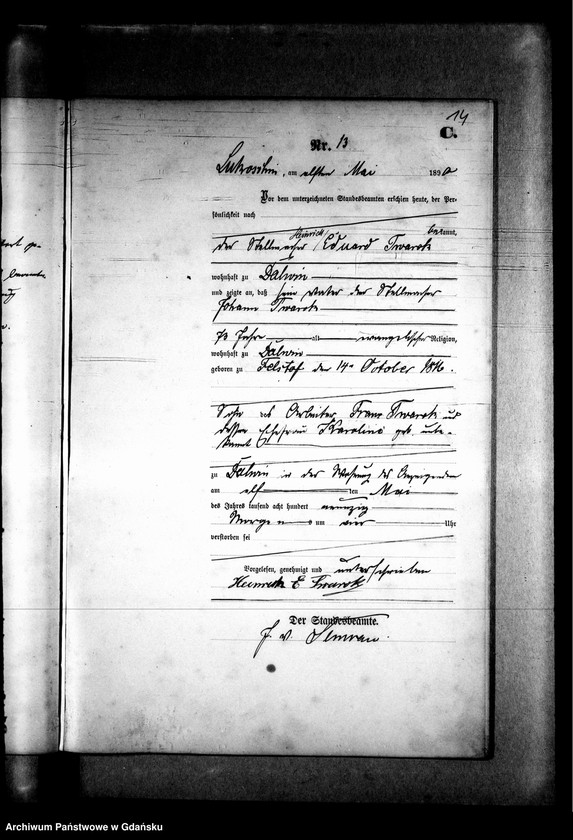 14
C.
Nr. 13
am elften Mai 1890
Vor dem unterzeichneten Standesbeamten erschien heute, der Per-
sönlichkeit nach
bekannt,
der Stellmacher Heinrich Eduard Twarok
wohnhaft zu Dalwin
und zeigte an, daß sein Vater der Stellmacher
Johann Twarok
73 Jahre alt evangelischer Religion,
wohnhaft zu Dalwin
geboren zu den 14n October 1816.
Sohn des Arbeiter Franz Twarok und
dessen Ehefrau Karoline geb. unbe-
kannt
zu Dalwin in der Wohnung des Anzeigenden
am elf ten Mai
des Jahres tausend acht hundert neunzig
Morgens um vier Uhr
verstorben sei
Vorgelesen, genehmigt und unterschrieben
Heinrich E Twarok
Der Standesbeamte.
Archiwum Państwowe w Gdańsku